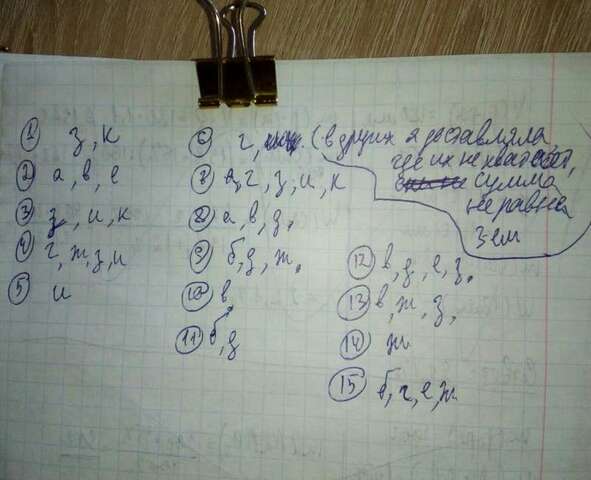 ① з, к
② а, в, е
③ з, и, к
④ г, ж, з, и
⑤ и
⑥ г, (в других я доставляла
где их не хватает,
сумма
не равна
зем
⑦ г, з, и, к
⑧ а, в, д,
⑨ б, д, ж,
⑩ в
⑪ б, д
⑫ в, д, е, з,
⑬ в, ж, з,
⑭ ж
⑮ б, г, е, ж